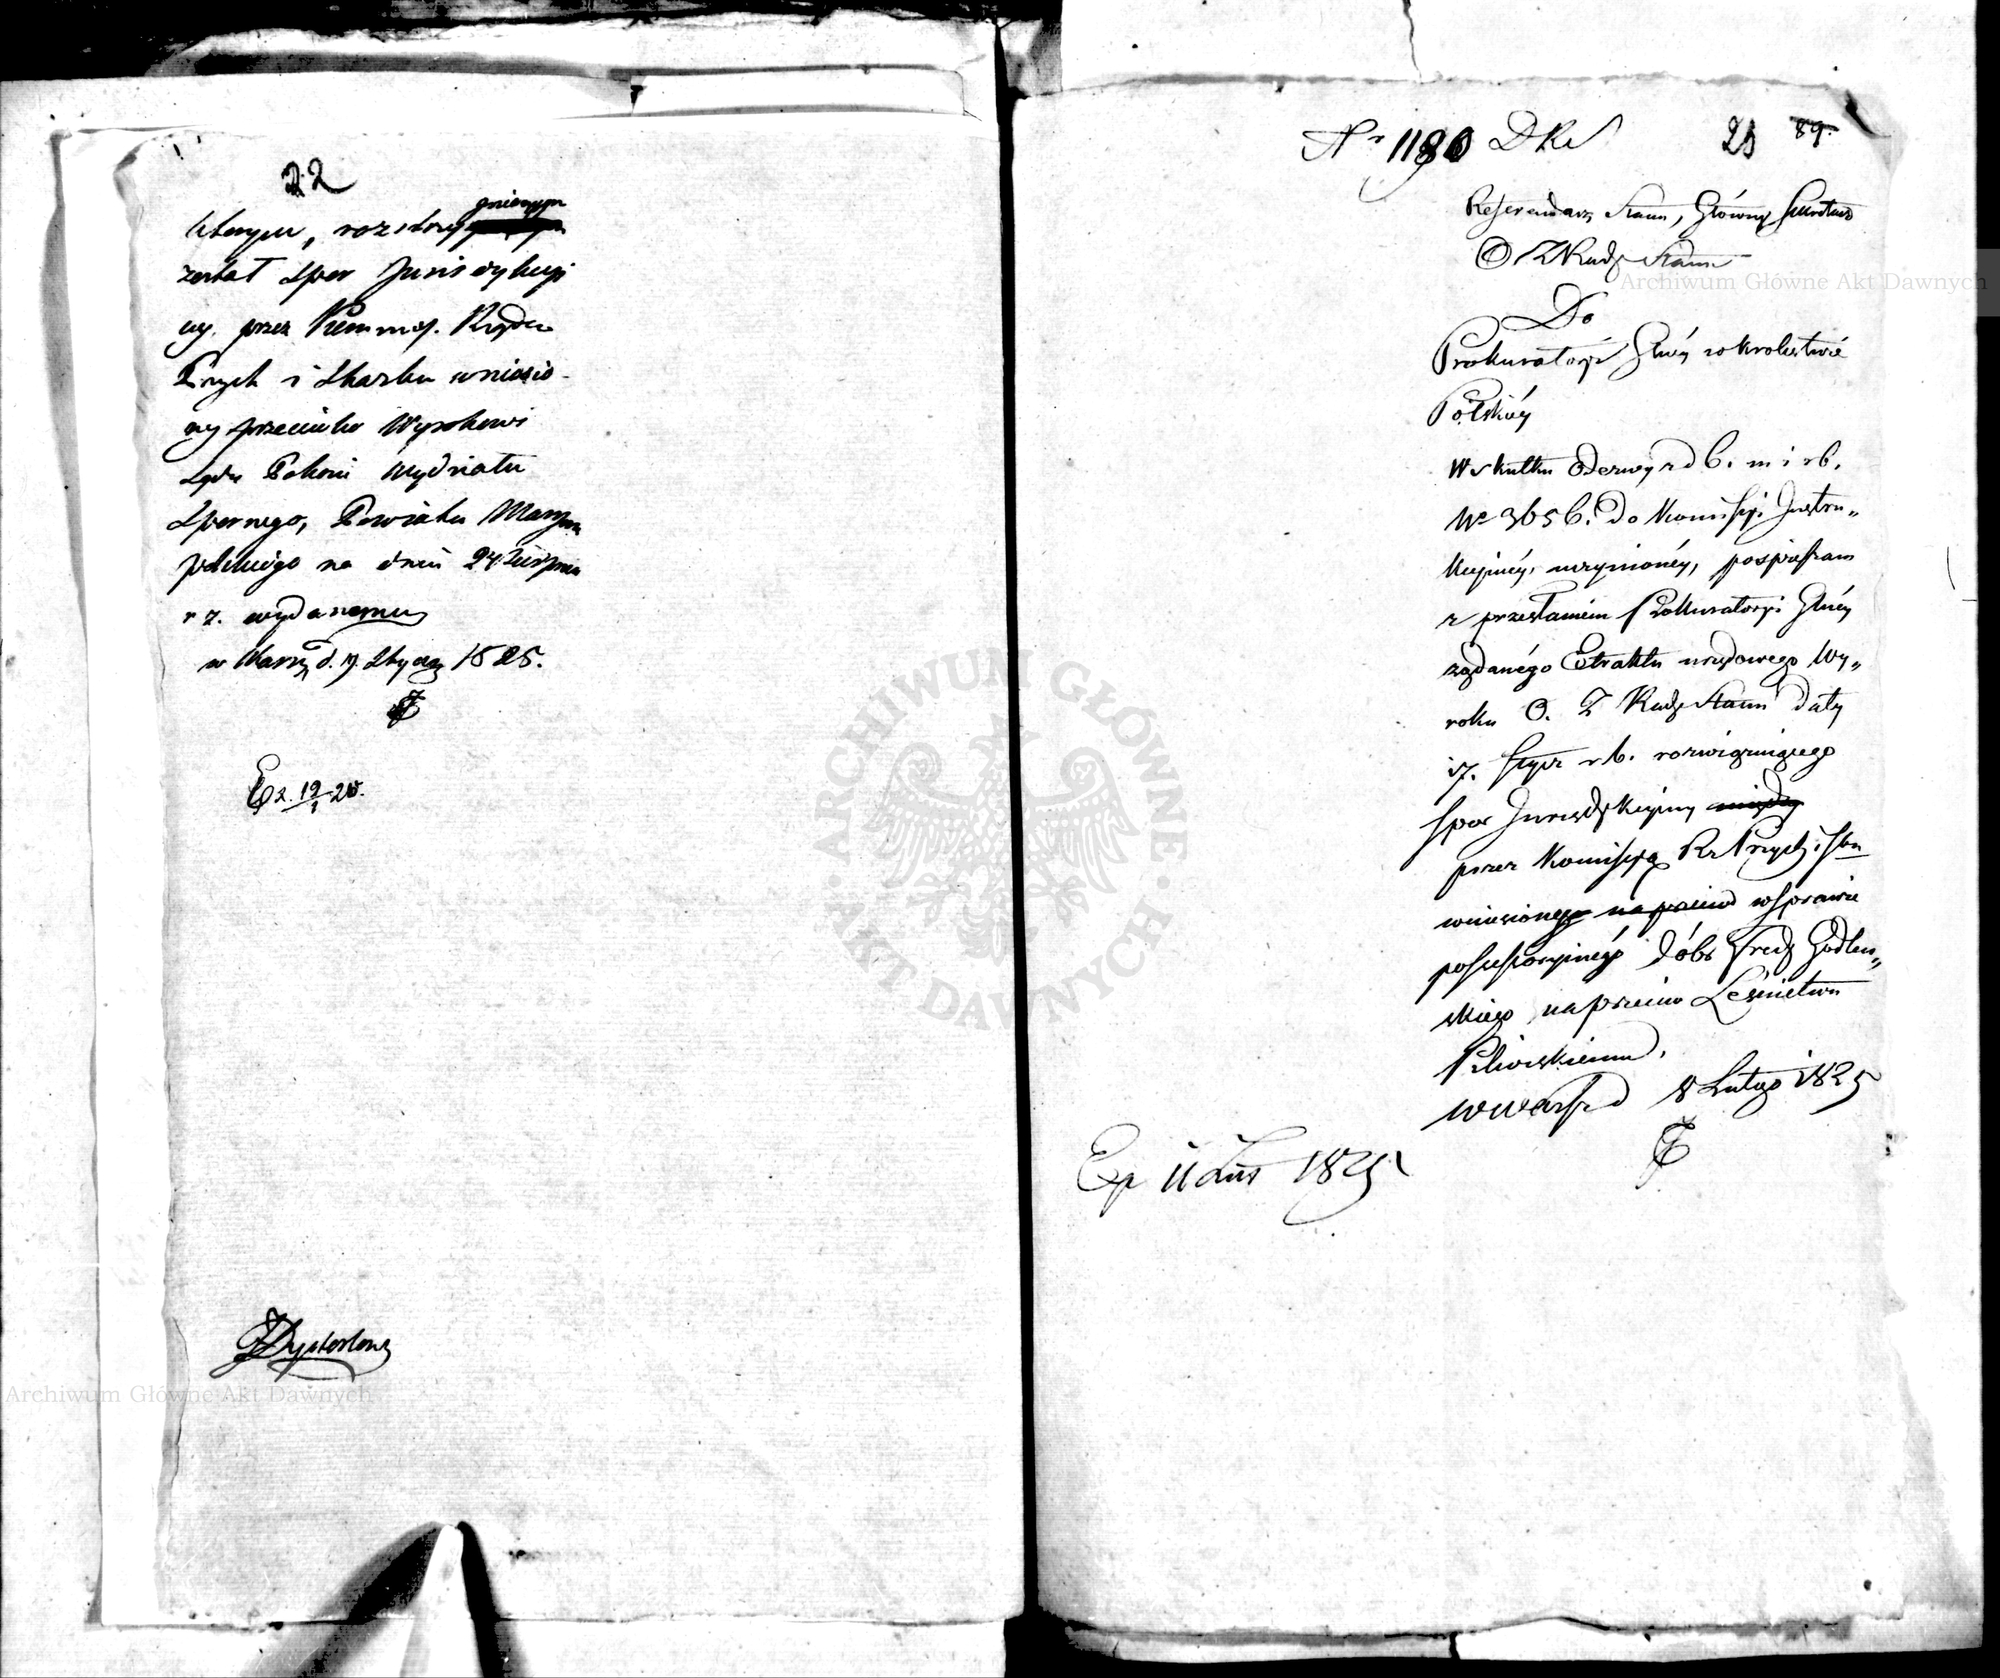 22
którym, rozstrzygnionym
został Spór Jurisdykcyj
ny. przez Kommis. Rządu
Przych i Skarbu wniesio-
ny przeciwko Wyrokowi
Sądu Pokoiu Wydziału
Spornego, Powiatu Maryam
polskiego na dniu 24 Sierpnia
r z. wydanemu
w Warsz d. 17. Stycz 1825.
Ex. 19/1 25.
Nr 1180 DKS
23 89.
Referendarz Stanu, Główny Sekretarz
O Z Rady Stanu
Do
Prokuratoryi Głney w Królestwie
Polskiéy
W skutku Odezwy z d 6. m i r b.
No 3656. Do Komissyi Instru„
kcyinéy, uczynionéy, pospieszam
z przesłaniem Prokuratoryi Głnéy
żądanégo Extraktu urzędowego Wy„
roku O. Z Rady Stanu daty
17. Stycz r b. rozwiązuiącego
spór Jurisdykcyiny między
przez Komissyą Rz Przych i Skru
wniesionego na przeciw w sprawie
possessoryinéy dóbr Fredy Godlew„
skiego na przeciw Leśnictwu
w Warsz d 8 Lutego 1825
Exp 11 Lut 1825
ARCHIWUM GŁÓWNE · AKT DAWNYCH ·
Archiwum Główne Akt Dawnych
Archiwum Główne Akt Dawnych